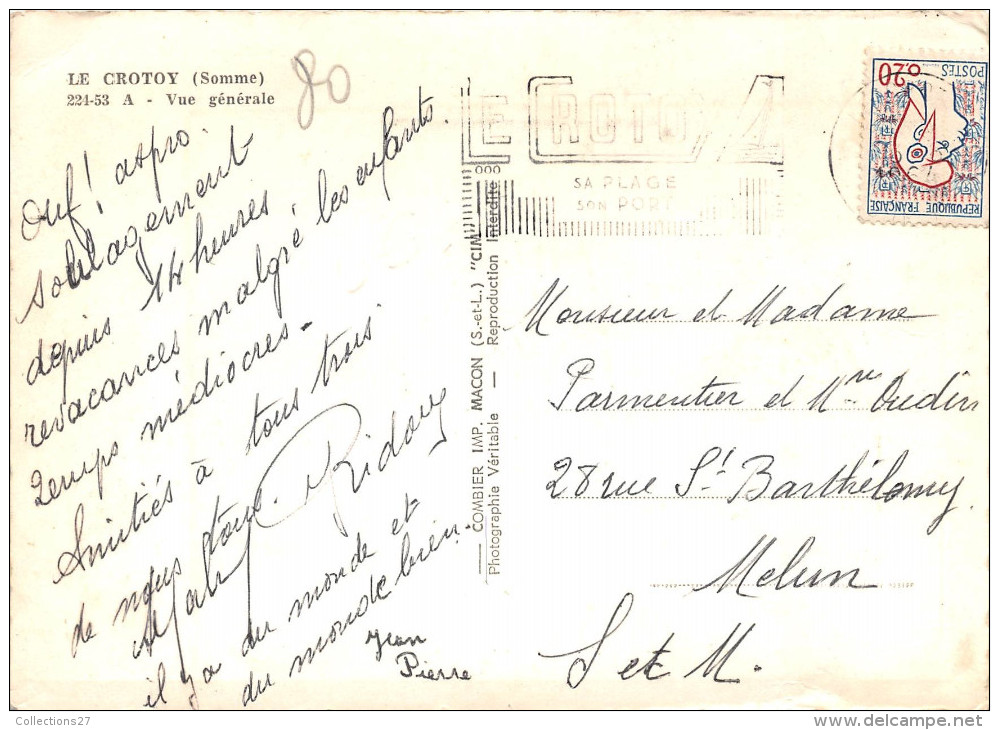 LE CROTOY (Somme)
224-53 A - Vue générale
80
Ouf! aspro.
soulagement
depuis 14 heures.
revacances malgré les enfants.
Temps médiocres.
Amitiés à tous trois
de nous tous. Ridoux
il y a du monde et
du monde bien.
Jean
Pierre
COMBIER IMP. MACON (S.-et-L.) "CIM"
Photographie Véritable — Reproduction Interdite
LE CROTOY
SA PLAGE
SON PORT
0,20
POSTES
REPUBLIQUE FRANÇAISE
Monsieur et Madame
Parmentier et Mme Oudin
28 rue St Barthélemy
Melun
S et M.
Collections27
www.delcampe.net